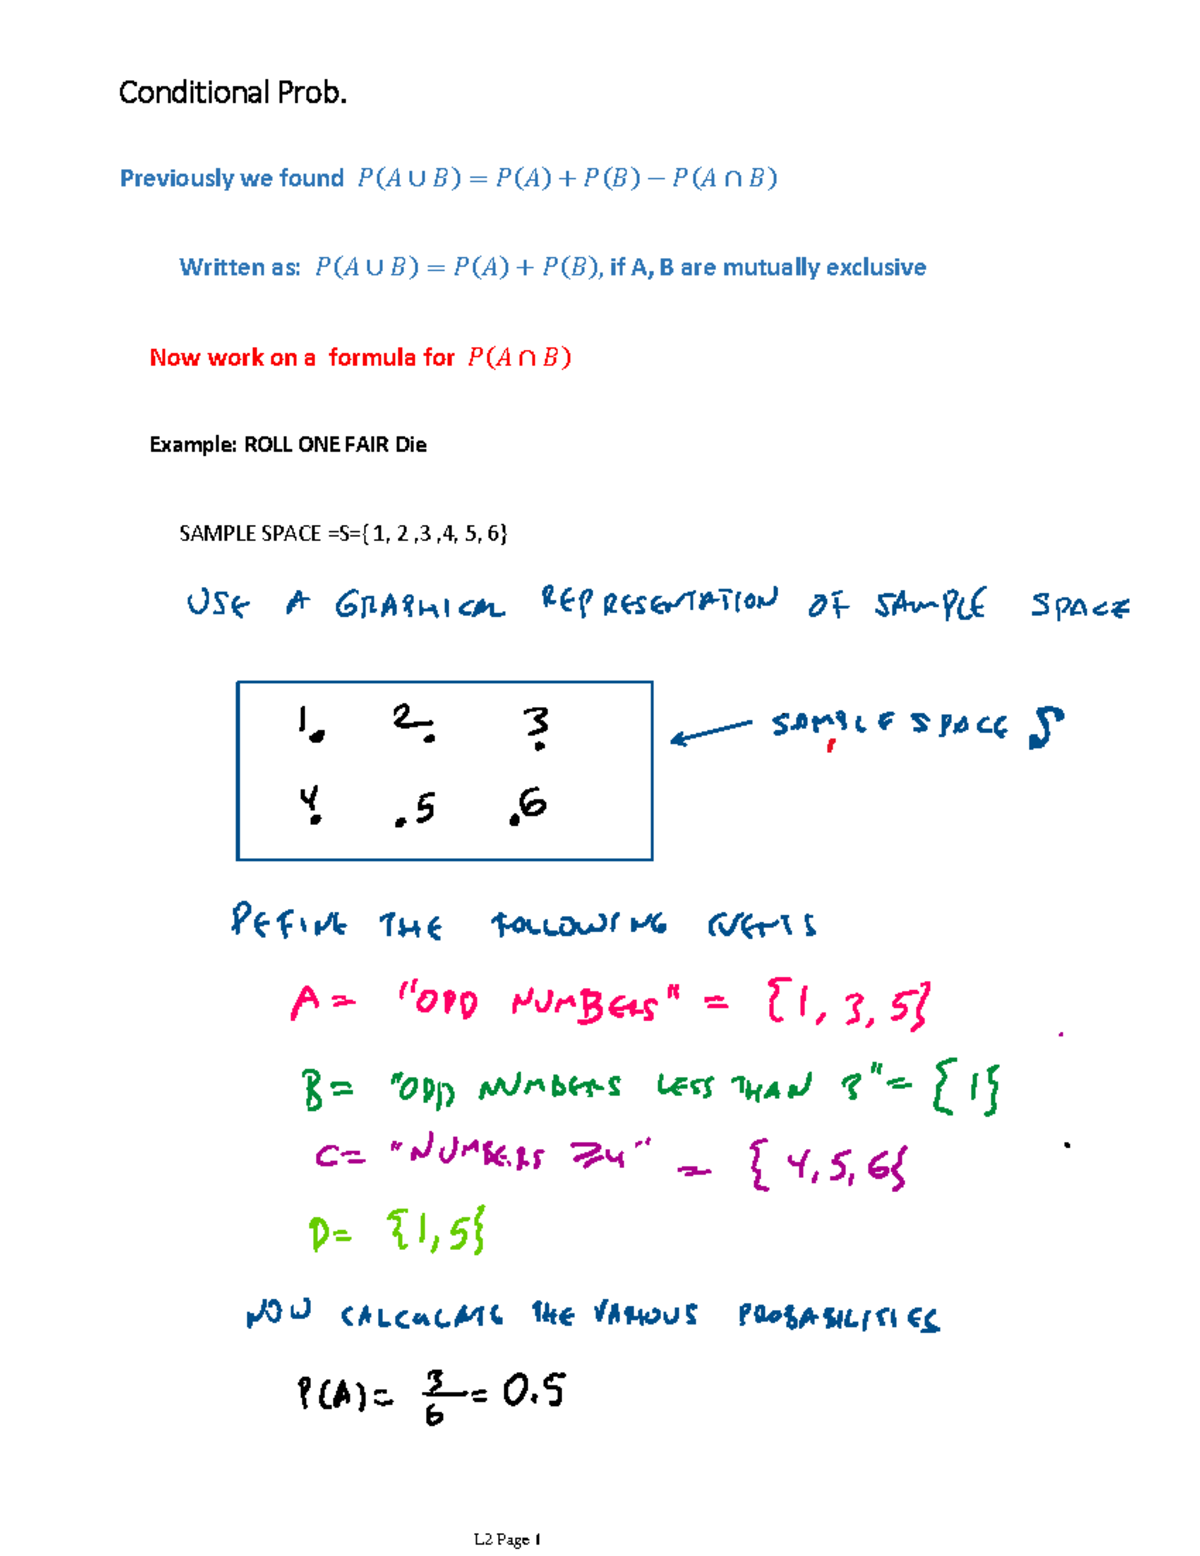 Conditional Prob.
Previously we found P(A ∪ B) = P(A) + P(B) − P(A ∩ B)
Written as: P(A ∪ B) = P(A) + P(B), if A, B are mutually exclusive
Now work on a formula for P(A ∩ B)
Example: ROLL ONE FAIR Die
SAMPLE SPACE =S={ 1, 2 ,3 ,4, 5, 6}
USE A GRAPHICAL REPRESENTATION OF SAMPLE SPACE
1. 2. 3.
4. .5 .6
SAMPLE SPACE S
DEFINE THE FOLLOWING EVENTS
A = "ODD NUMBERS" = {1, 3, 5}
B = "ODD NUMBERS LESS THAN 3" = {1}
C = "NUMBERS ≥4" = {4, 5, 6}
D = {1, 5}
NOW CALCULATE THE VARIOUS PROBABILITIES
P(A) = 3/6 = 0.5
L2 Page 1